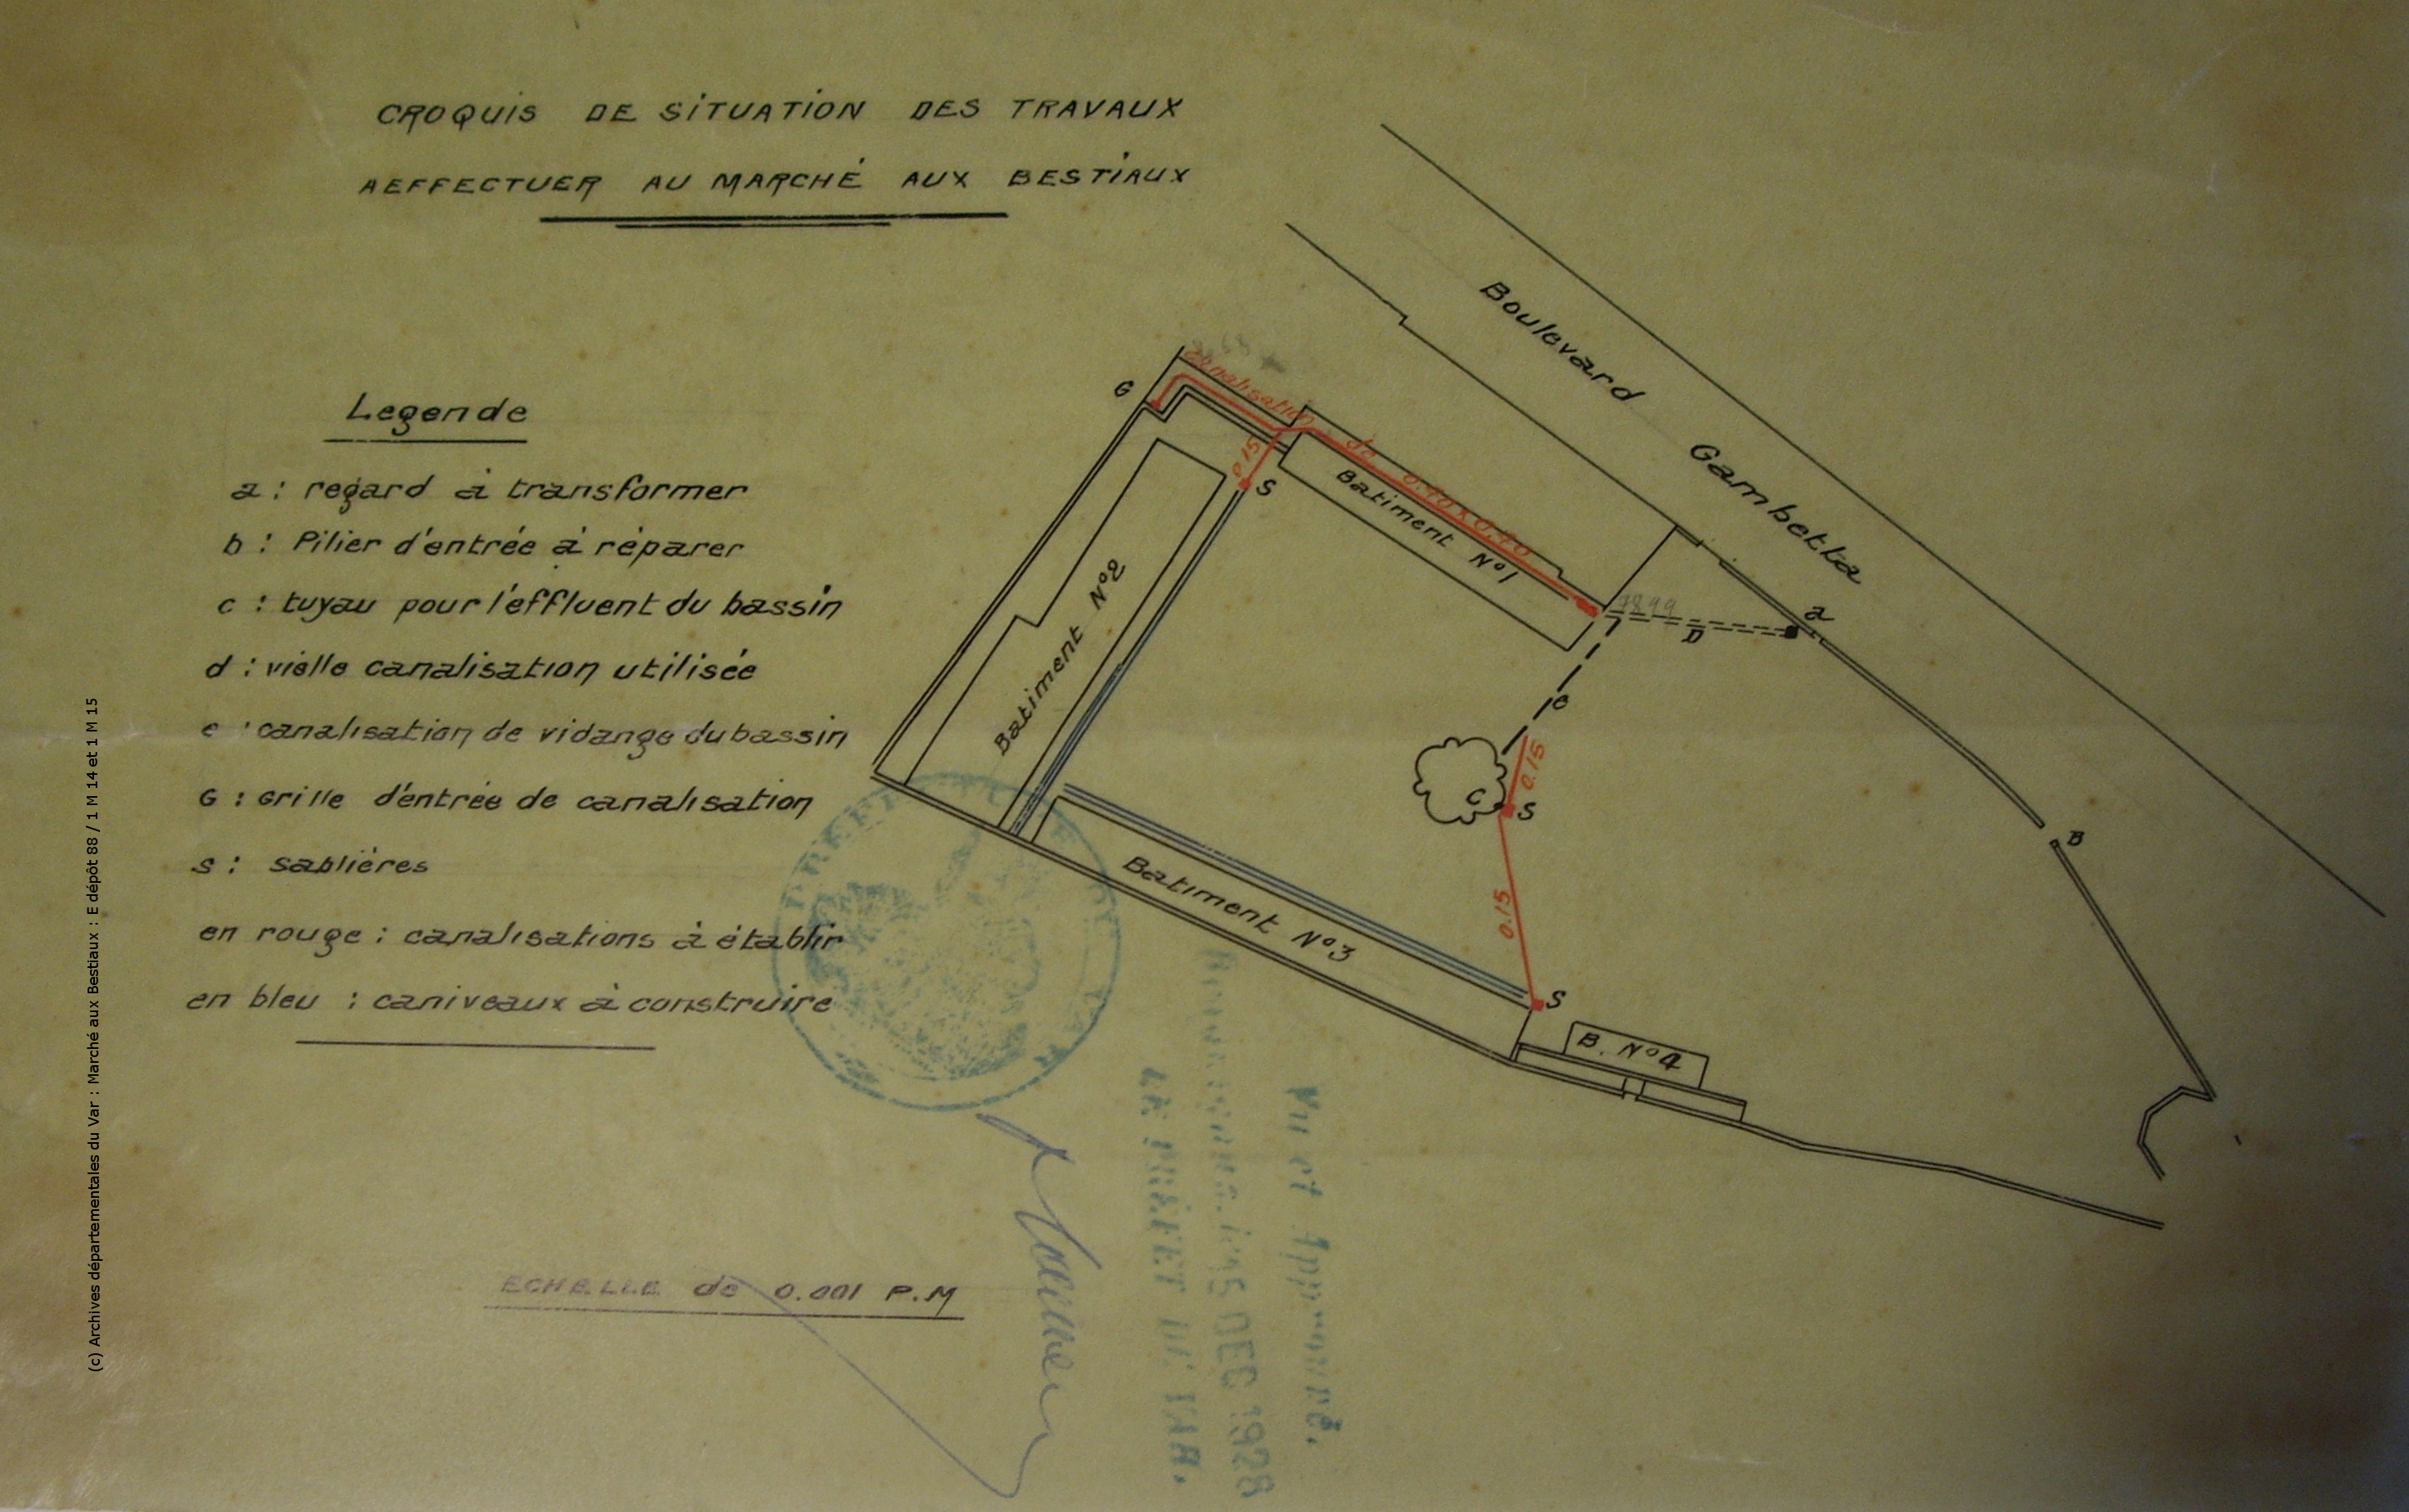 CROQUIS DE SITUATION DES TRAVAUX
AEFFECTUER AU MARCHÉ AUX BESTIAUX
Legende
a : regard à transformer
b : Pilier d'entrée à réparer
c : tuyau pour l'effluent du bassin
d : vielle canalisation utilisée
e : canalisation de vidange du bassin
G : Grille d'entrée de canalisation
S : sablières
en rouge : canalisations à établir
en bleu : caniveaux à construire
ECHELLE de 0.001 P.M
Boulevard Gambetta
G
canalisation de 0.40 x 0.40
0.15
S
Batiment N°1
Batiment N°2
D
a
e
0.15
C
S
B
Batiment N°3
0.15
S
B. N°4
PREFECTURE DU VAR
Vu et Approuvé.
DEC 1928
LE PRÉFET DU VAR.
(c) Archives départementales du Var : Marché aux Bestiaux : E dépôt 88 / 1 M 14 et 1 M 15